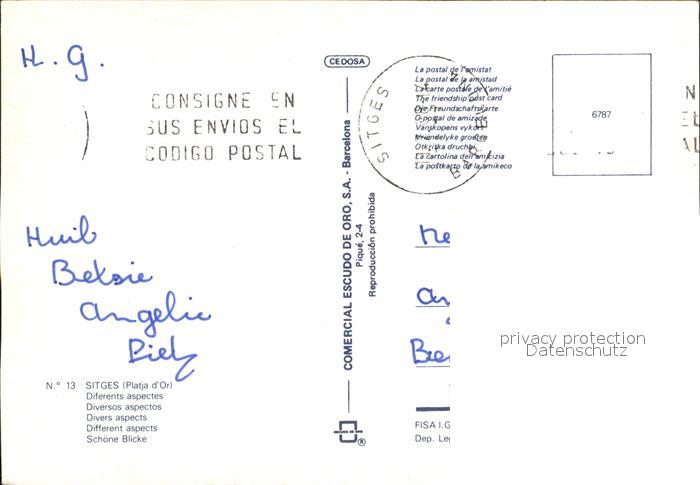 H. G.
CONSIGNE EN
SUS ENVIOS EL
CODIGO POSTAL
Huib
Betsie
Angelic
Piet
N.° 13 SITGES (Platja d'Or)
Diferents aspectes
Diversos aspectos
Divers aspects
Different aspects
Schöne Blicke
CEDOSA
COMERCIAL ESCUDO DE ORO, S.A. - Barcelona
Piqué, 2-4
Reproducción prohibida
®
SITGES
BARCELONA
La postal de l'amistat
La postal de la amistad
La carte postale de l'amitié
The friendship post card
Die Freundschaftskarte
O postal de amizade
Vänskapens vykort
Vriendelyke groeten
Otkritka druchbi
La cartolina dell'amicizia
La postkarto de la amikeco
6787
privacy protection
Datenschutz
FISA I.G
Dep. Le